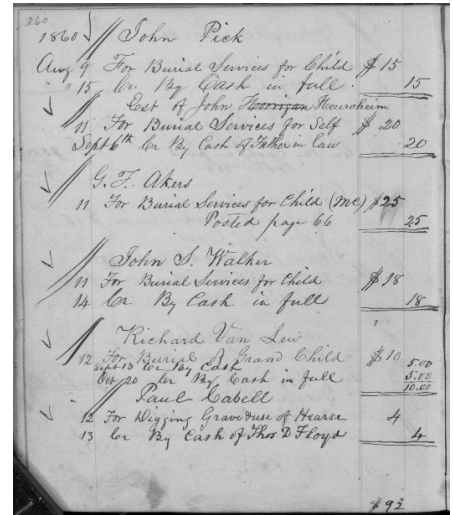 360
1860 John Pick
Aug 9 For Burial Services for Child $15
" 15 Cr. By Cash in full. 15
Est of John Horrigan
11 For Burial Services for Self $ 20
Sept 6th Cr By Cash of Father in law 20
G. F. Akers
11 For Burial Services for Child (MC) $25
Posted page 66 25
John S. Walker
11 For Burial Services for Child $18
14 Cr By Cash in full 18
Richard Van Lew
12 For Burial of Grand Child $10
Sept 13 Cr By Cash 5.00
Oct 20 Cr By Cash in full 5.00
10.00
Paul Cabell
12 For Digging Grave & use of Hearse 4
13 Cr By Cash of Thos D Floyd 4
$92